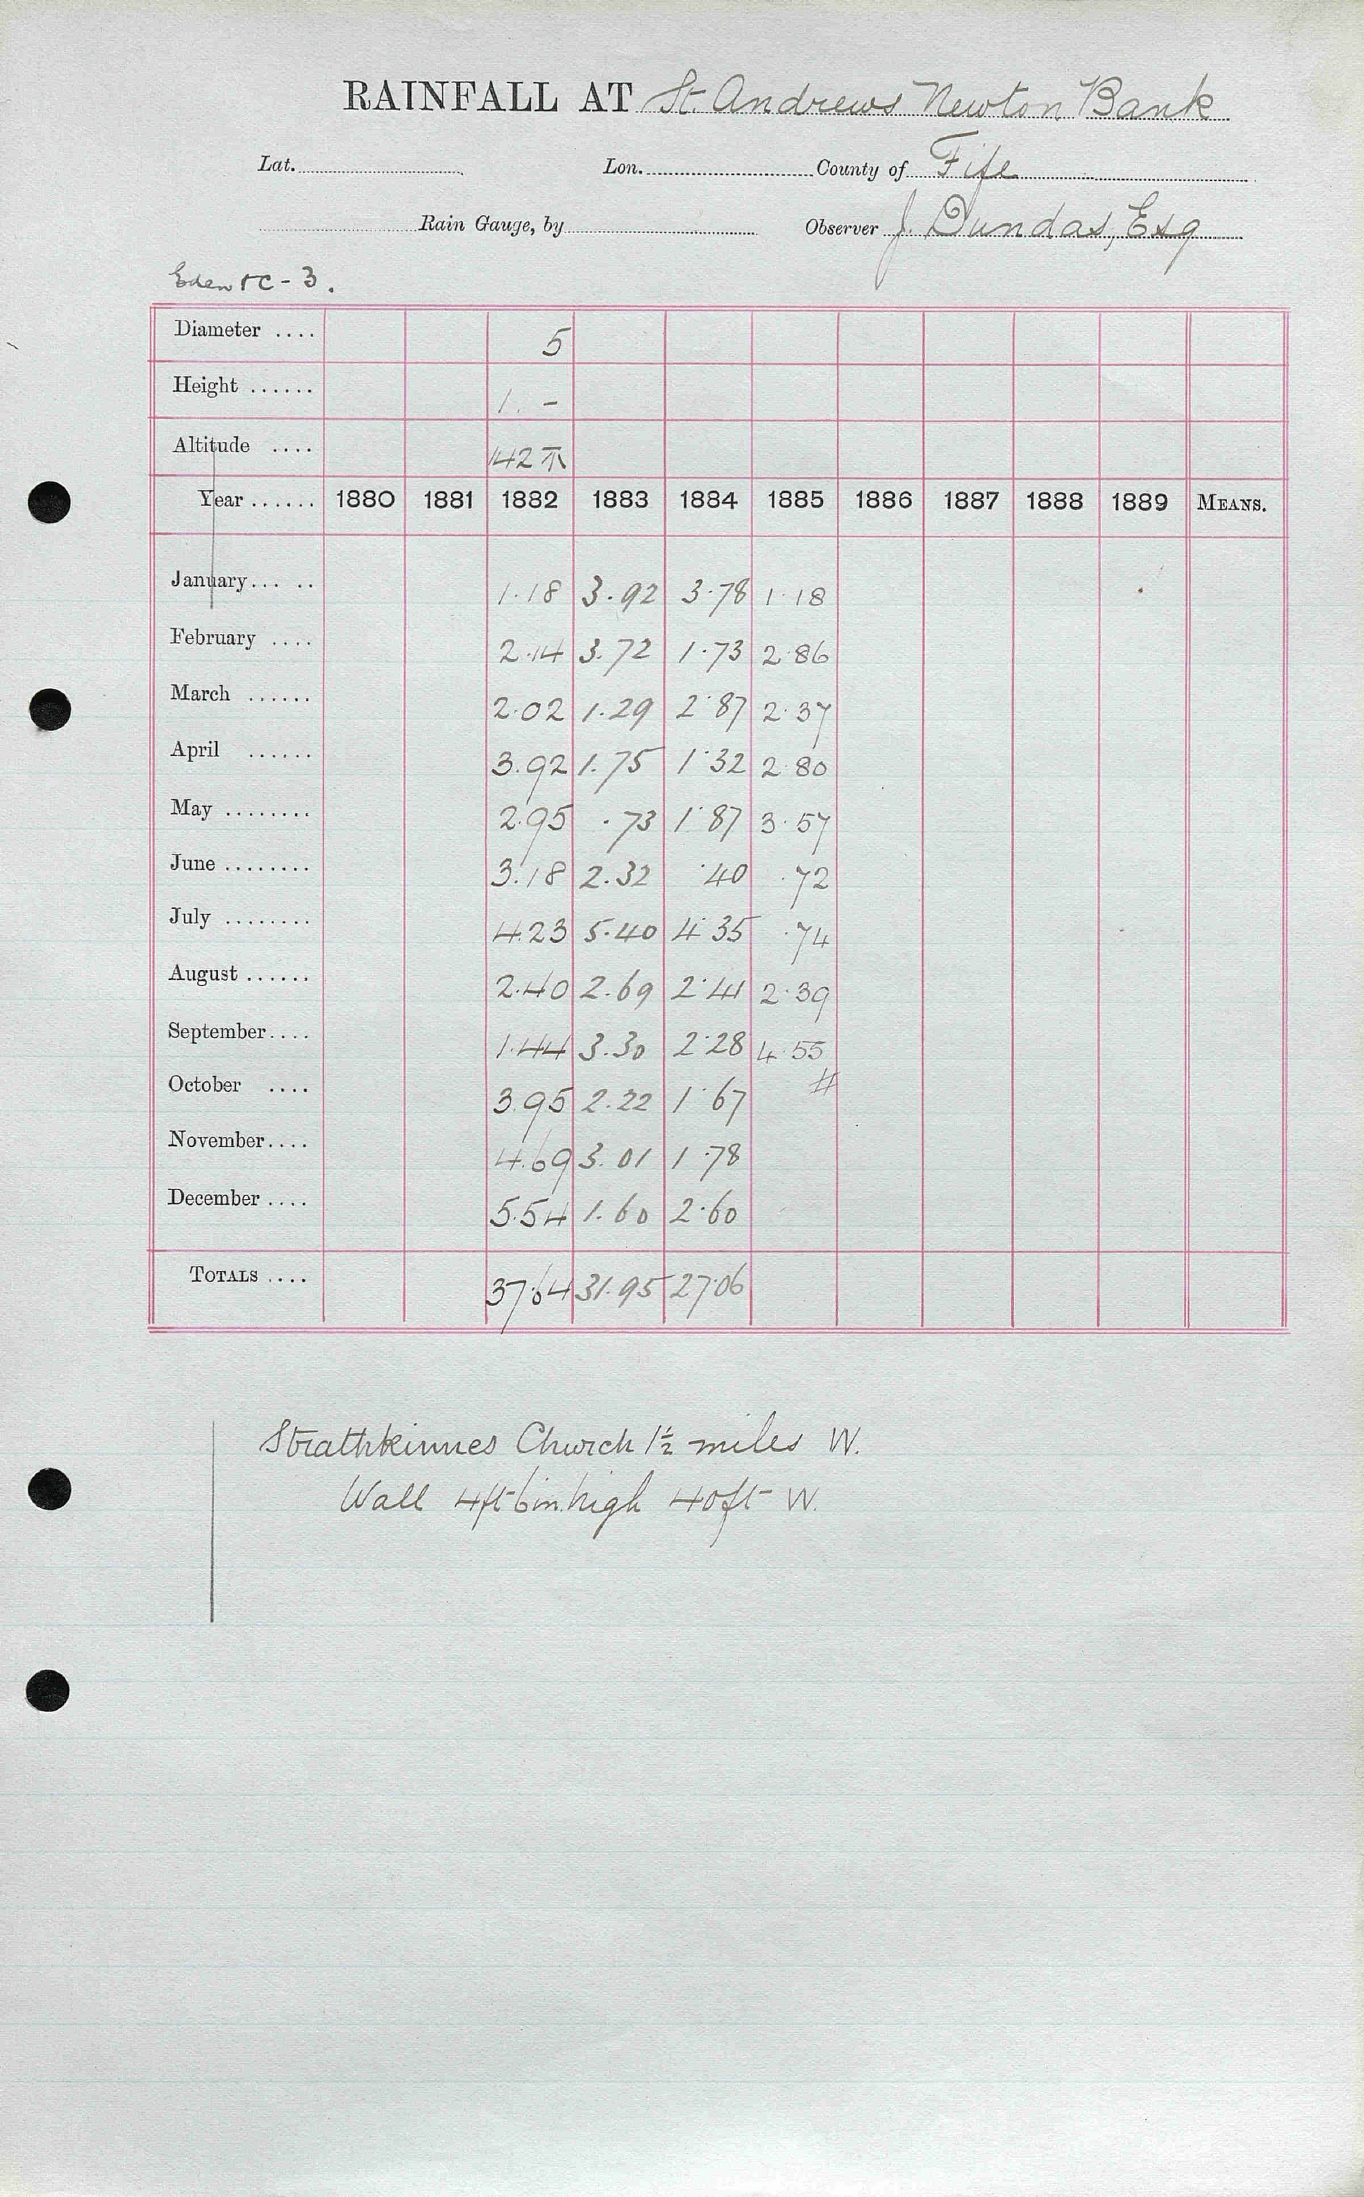 RAINFALL AT St. Andrews Newton Bank
Lat. Lon. County of Fife
Rain Gauge, by Observer J. Dundas, Esq
Eden &c - 3.
Diameter .... 5
Height ...... 1. -
Altitude .... 142
Year ...... 1880 1881 1882 1883 1884 1885 1886 1887 1888 1889 MEANS.
January... .. 1.18 3.92 3.78 1.18
February .... 2.14 3.72 1.73 2.86
March ...... 2.02 1.29 2.87 2.37
April ...... 3.92 1.75 1.32 2.80
May ........ 2.95 .73 1.87 3.57
June ........ 3.18 2.32 .40 .72
July ........ 4.23 5.40 4.35 .74
August ...... 2.40 2.69 2.41 2.39
September.... 1.44 3.30 2.28 4.55
October .... 3.95 2.22 1.67 #
November.... 4.69 3.01 1.78
December .... 5.54 1.60 2.60
TOTALS .... 37.64 31.95 27.06
Strathkinnes Church 1½ miles W.
Wall 4ft 6in. high 40ft W.